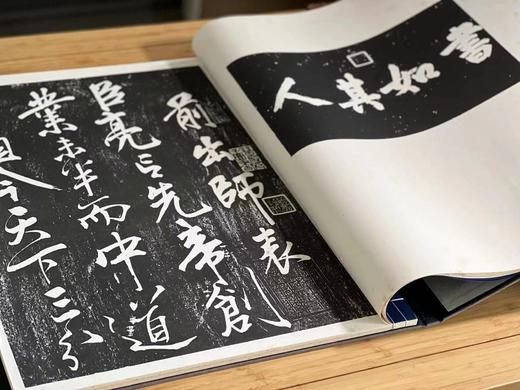 書如其人
前出師表
臣亮言先帝創
業未半而中道
今天下三分